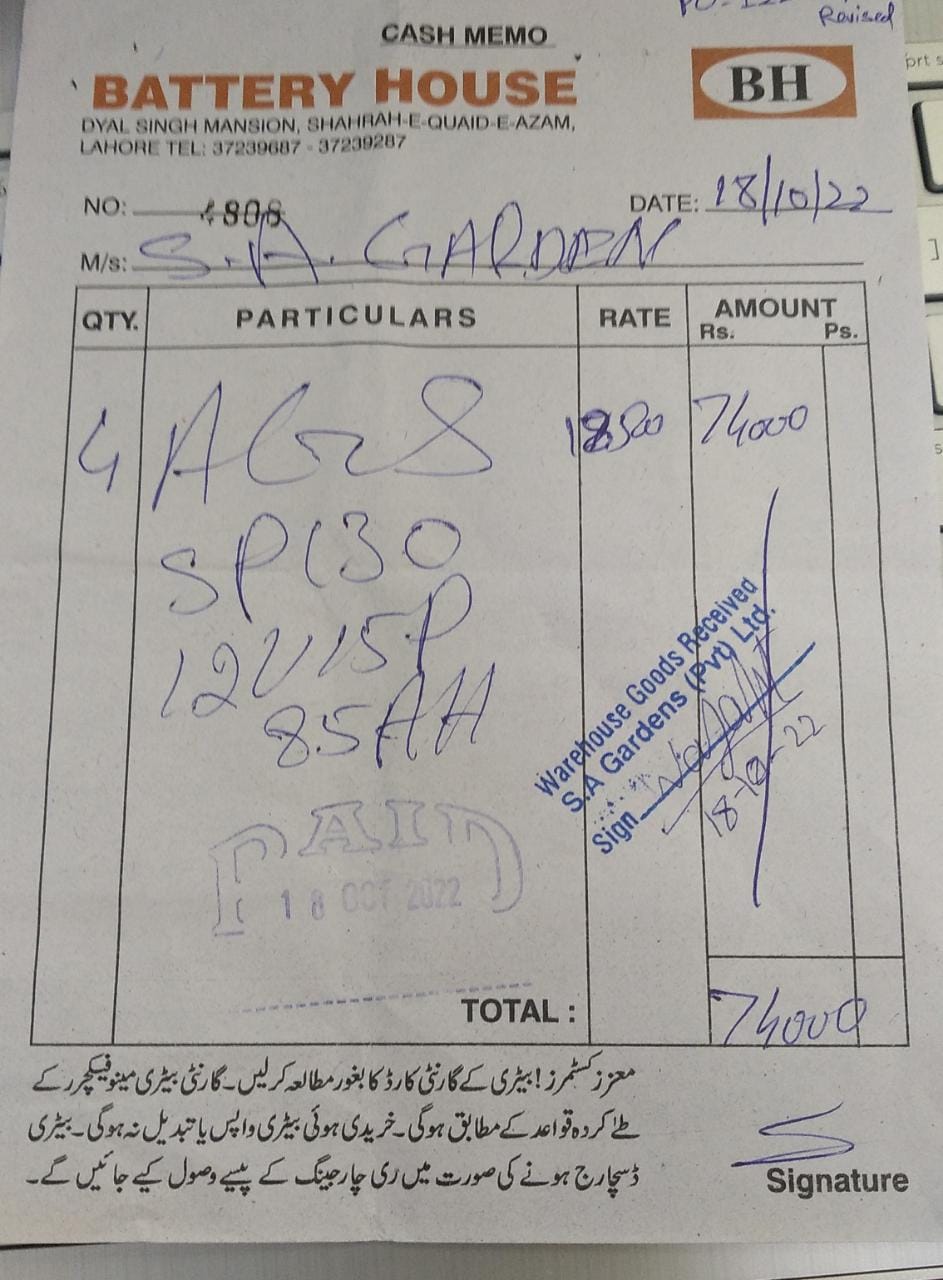 Revised
CASH MEMO
BATTERY HOUSE
BH
DYAL SINGH MANSION, SHAHRAH-E-QUAID-E-AZAM,
LAHORE TEL: 37239687 - 37239287
NO: 4806 DATE: 18/10/22
M/s: S.A. GARDEN
QTY. PARTICULARS RATE AMOUNT
Rs. Ps.
4 AGS 18500 74000
SP130
12V15P
85AH
Warehouse Goods Received
S.A Gardens (Pvt) Ltd.
Sign
18-10-22
PAID
18 OCT 2022
TOTAL : 74000
معزز کسٹمرز! بیٹری کے گارنٹی کارڈ کا بغور مطالعہ کرلیں۔ گارنٹی بیٹری مینوفیکچرر کے
طے کردہ قواعد کے مطابق ہوگی۔ خریدی ہوئی بیٹری واپس یا تبدیل نہ ہوگی۔ بیٹری
ڈسچارج ہونے کی صورت میں ری چارجینگ کے پیسے وصول کیے جائیں گے۔
Signature